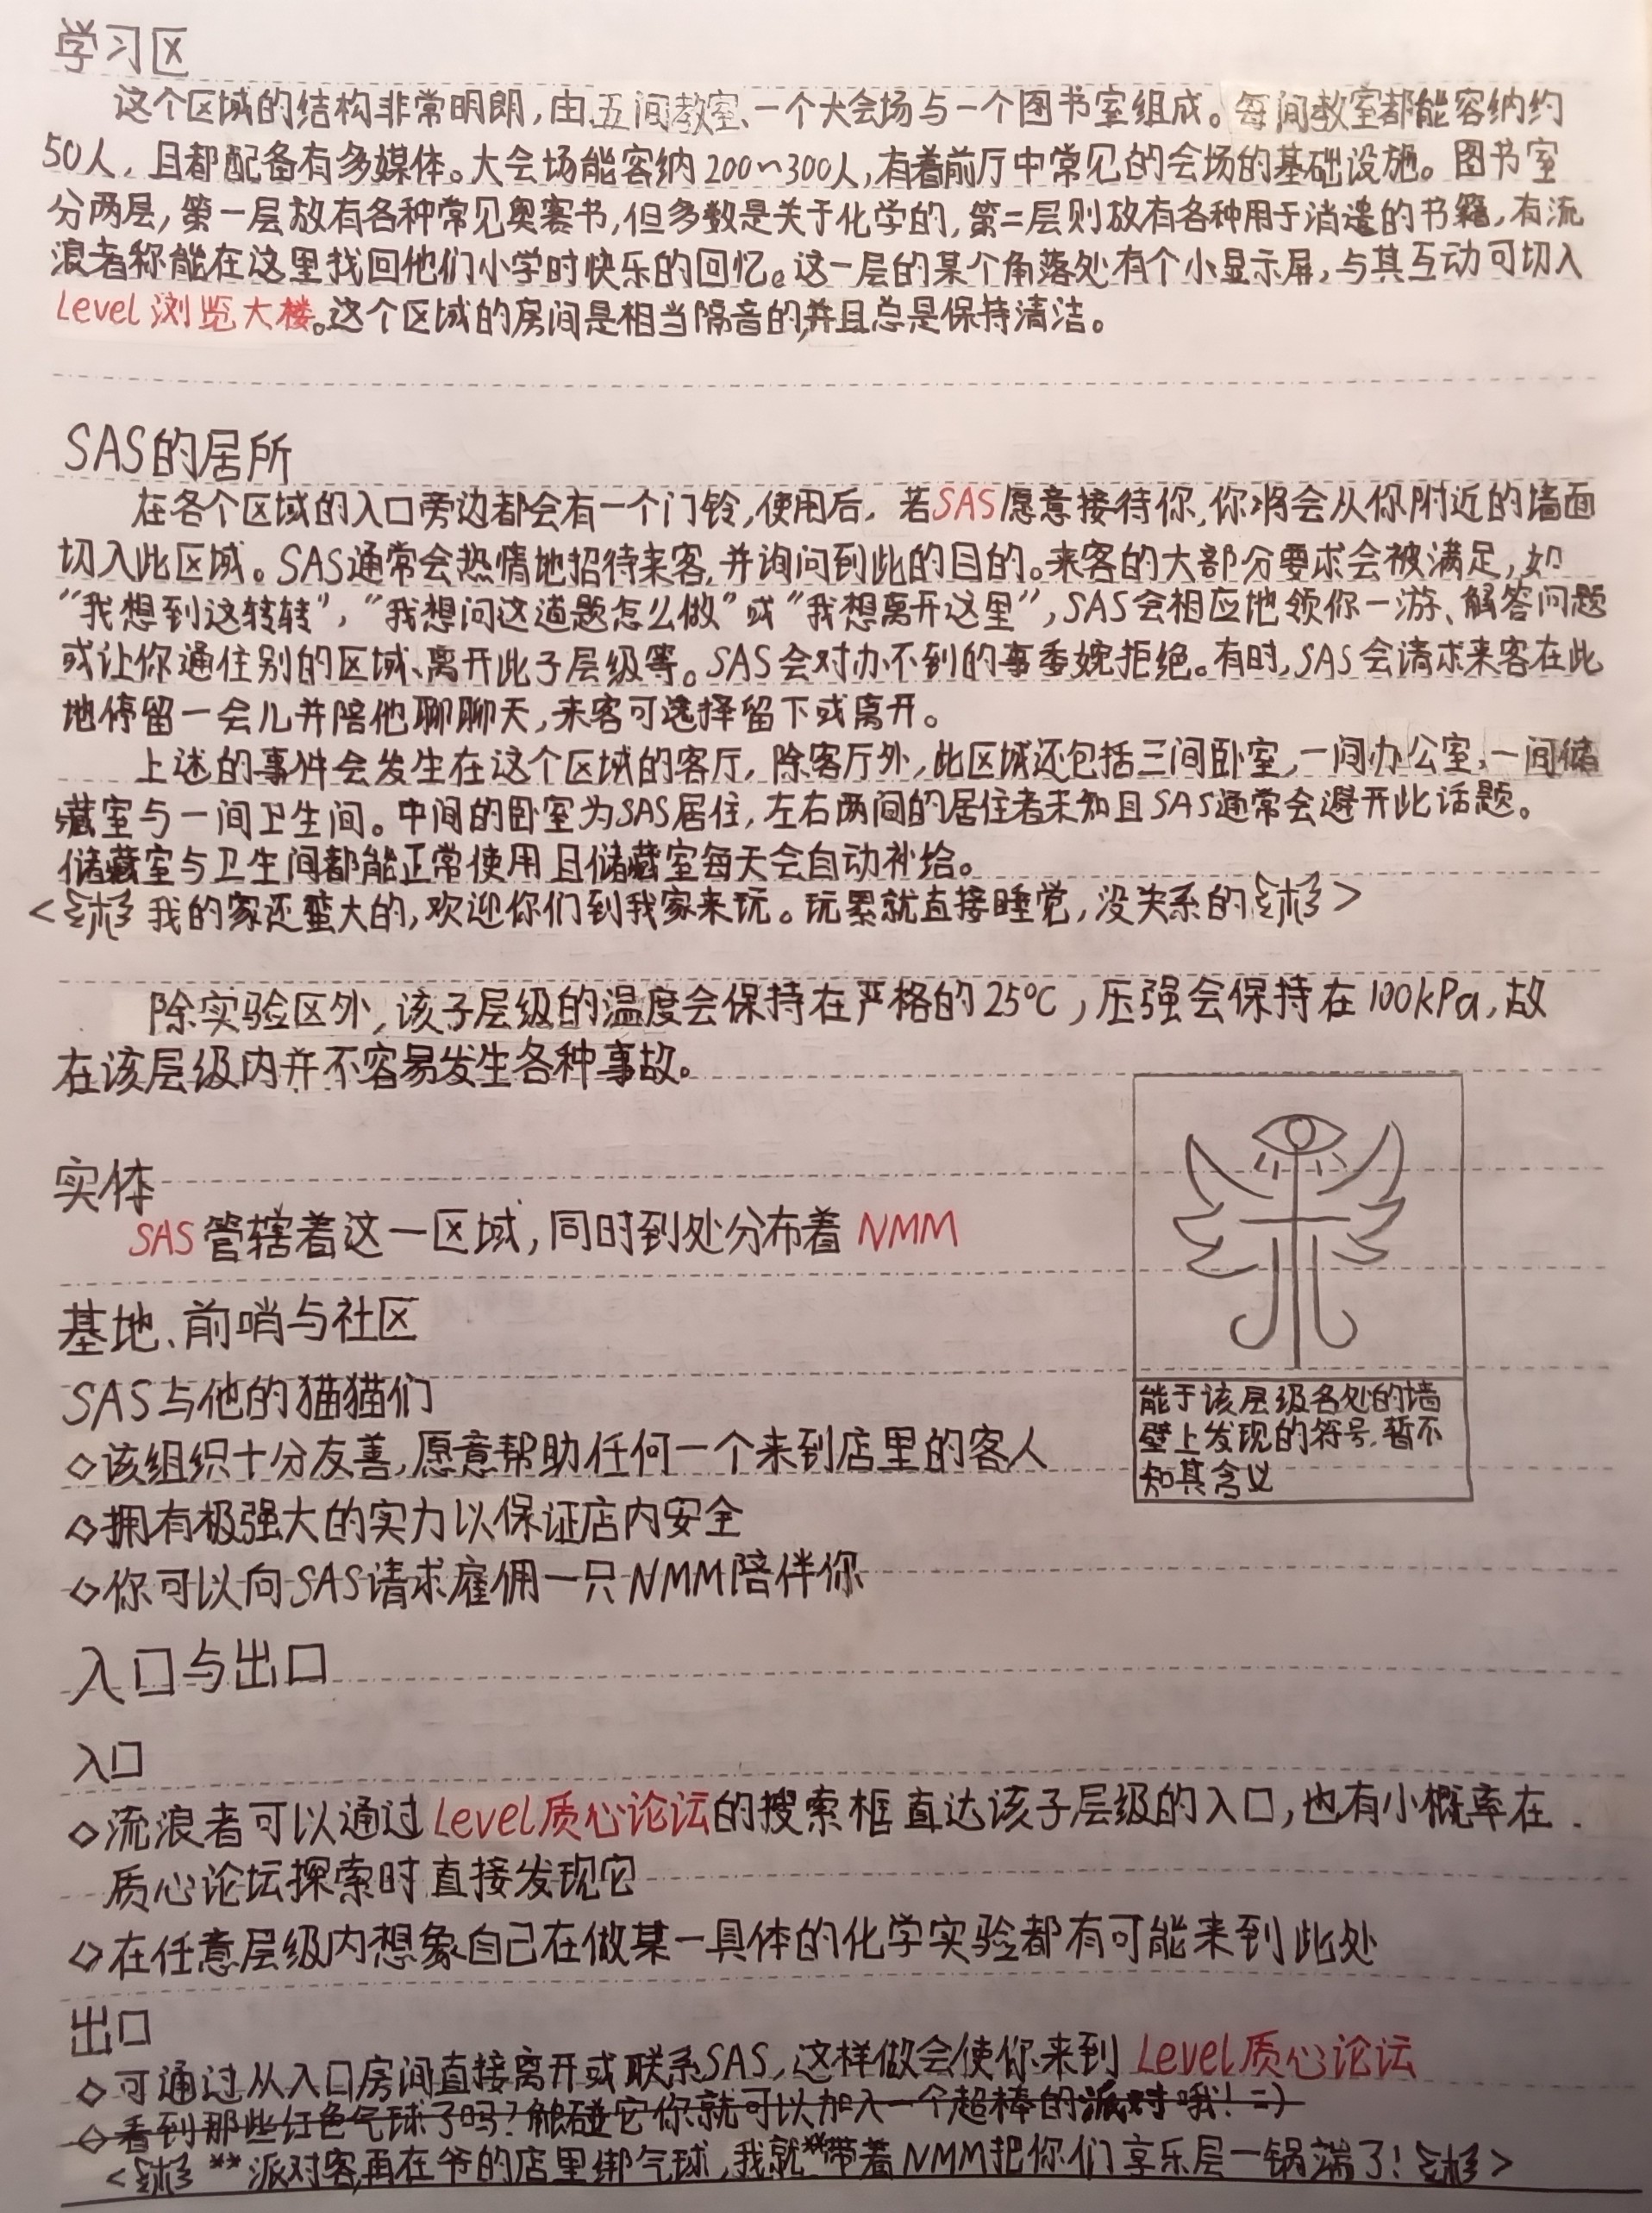 学习区
这个区域的结构非常明朗，由五间教室、一个大会场与一个图书室组成。每间教室都能容纳约
50人，且都配备有多媒体。大会场能容纳200~300人，有着前厅中常见的会场的基础设施。图书室
分两层，第一层放有各种常见奥赛书，但多数是关于化学的，第二层则放有各种用于消遣的书籍，有流
浪者称能在这里找回他们小学时快乐的回忆。这一层的某个角落处有个小显示屏，与其互动可切入
Level 浏览大楼。这个区域的房间是相当隔音的，并且总是保持清洁。
SAS的居所
在各个区域的入口旁边都会有一个门铃，使用后，若SAS愿意接待你，你将会从你附近的墙面
切入此区域。SAS通常会热情地招待来客，并询问到此的目的。来客的大部分要求会被满足，如
“我想到这转转”，“我想问这道题怎么做”或“我想离开这里”，SAS会相应地领你一游、解答问题
或让你通往别的区域、离开此子层级等。SAS会对办不到的事委婉拒绝。有时，SAS会请求来客在此
地停留一会儿并陪他聊聊天，来客可选择留下或离开。
上述的事件会发生在这个区域的客厅，除客厅外，此区域还包括三间卧室，一间办公室，一间储
藏室与一间卫生间。中间的卧室为SAS居住，左右两间的居住者未知且SAS通常会避开此话题。
储藏室与卫生间都能正常使用且储藏室每天会自动补给。
< 我的家还蛮大的，欢迎你们到我家来玩。玩累就直接睡觉，没关系的 >
除实验区外，该子层级的温度会保持在严格的25°C，压强会保持在100kPa，故
在该层级内并不容易发生各种事故。
实体
SAS管辖着这一区域，同时到处分布着 NMM
基地、前哨与社区
SAS与他的猫猫们
◇该组织十分友善，愿意帮助任何一个来到店里的客人
◇拥有极强大的实力以保证店内安全
◇你可以向SAS请求雇佣一只NMM陪伴你
能于该层级各处的墙
壁上发现的符号，暂不
知其含义
入口与出口
入口
◇流浪者可以通过Level质心论坛的搜索框直达该子层级的入口，也有小概率在
质心论坛探索时直接发现它
◇在任意层级内想象自己在做某一具体的化学实验都有可能来到此处
出口
◇可通过从入口房间直接离开或联系SAS，这样做会使你来到 Level质心论坛
◇看到那些红色气球了吗？触碰它你就可以加入一个超棒的派对哦！=)
< **派对客再在爷的店里绑气球，我就**带着NMM把你们享乐层一锅端了！ >